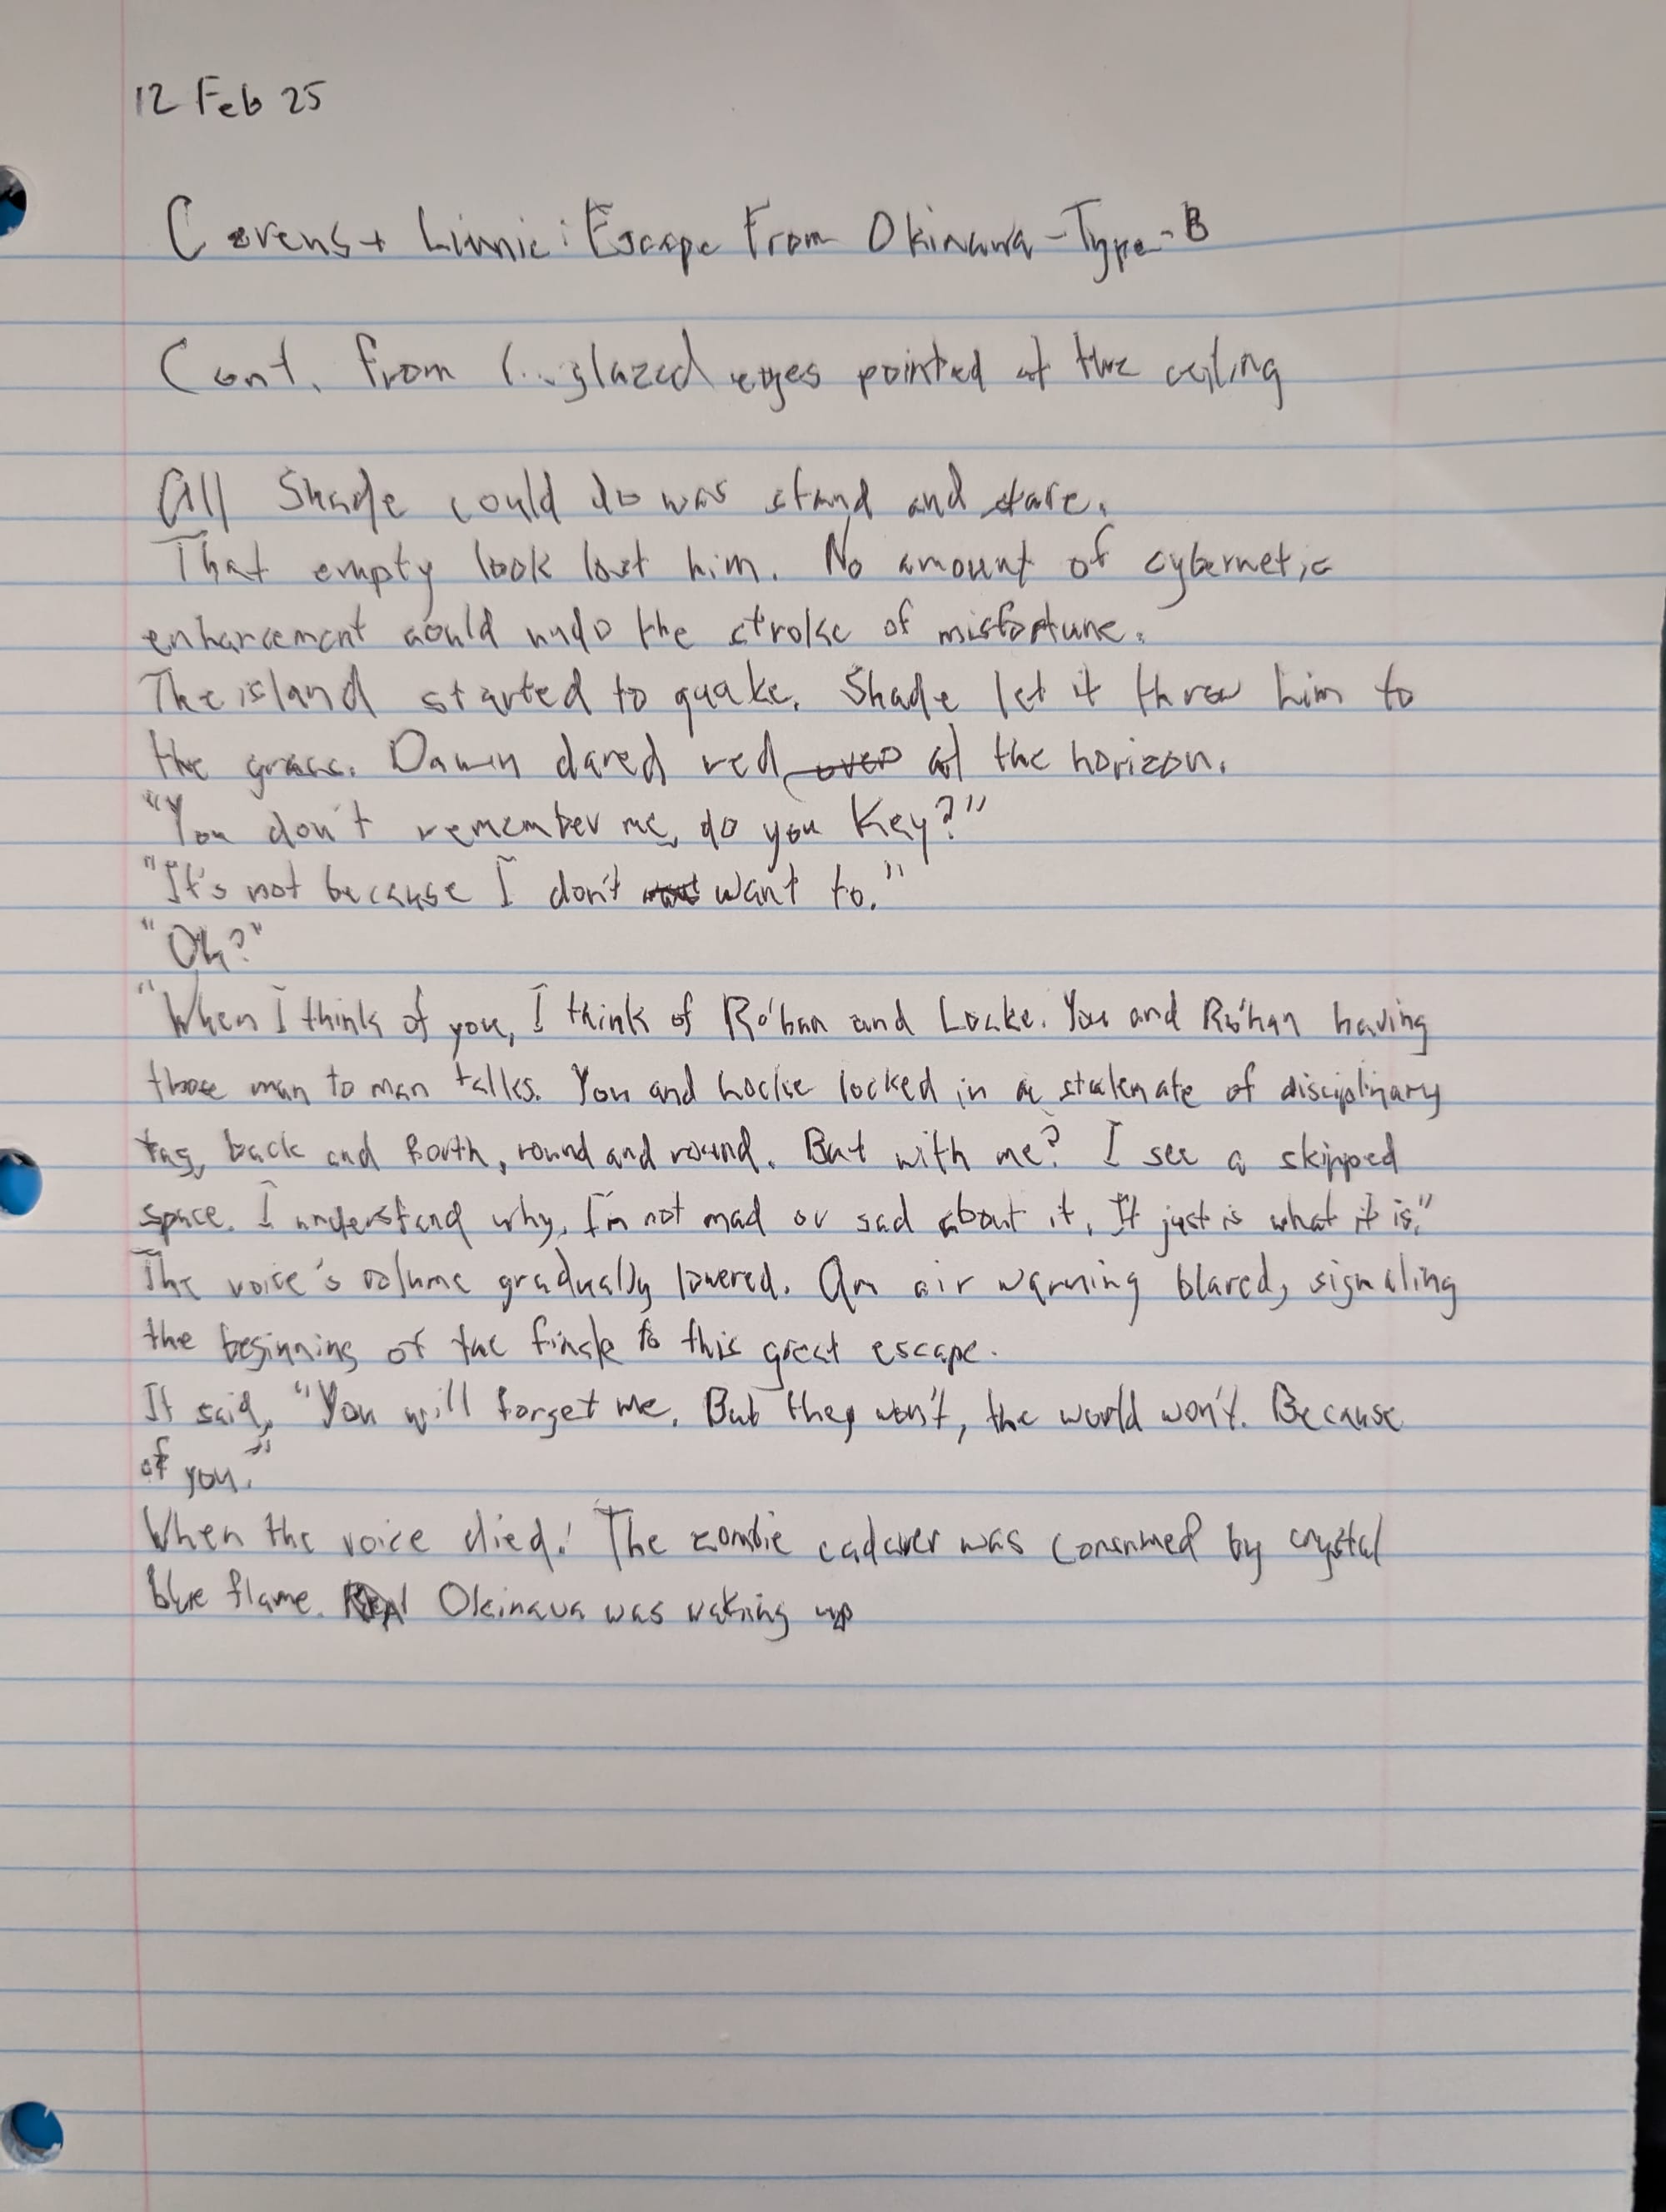 12 Feb 25
Linnic: Escape From Okinawa-Type-B
Cont. from (...glazed eyes pointed at the ceiling
All Shade could do was stand and stare.
That empty look lost him. No amount of cybernetic
enhancement would undo the stroke of misfortune.
The island started to quake. Shade let it throw him to
the grass. Dawn dared red over at the horizon.
"You don't remember me, do you Key?"
"It's not because I don't want to."
"Oh?"
"When I think of you, I think of Ro'han and Locke. You and Ro'han having
those man to man talks. You and Locke locked in a stalemate of disciplinary
tag, back and forth, round and round. But with me? I see a skipped
space. I understand why, I'm not mad or sad about it. It just is what it is."
The voice's volume gradually lowered. An air warning blared, signaling
the beginning of the finale to this great escape.
It said, "You will forget me. But they won't, the world won't. Because
of you."
When the voice died. The zombie cadaver was consumed by crystal
blue flame. Okinawa was waking up